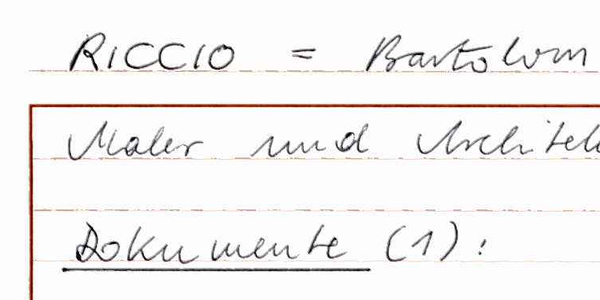 RICCIO = Bartolom
Maler und Architek
Dokumente (1):